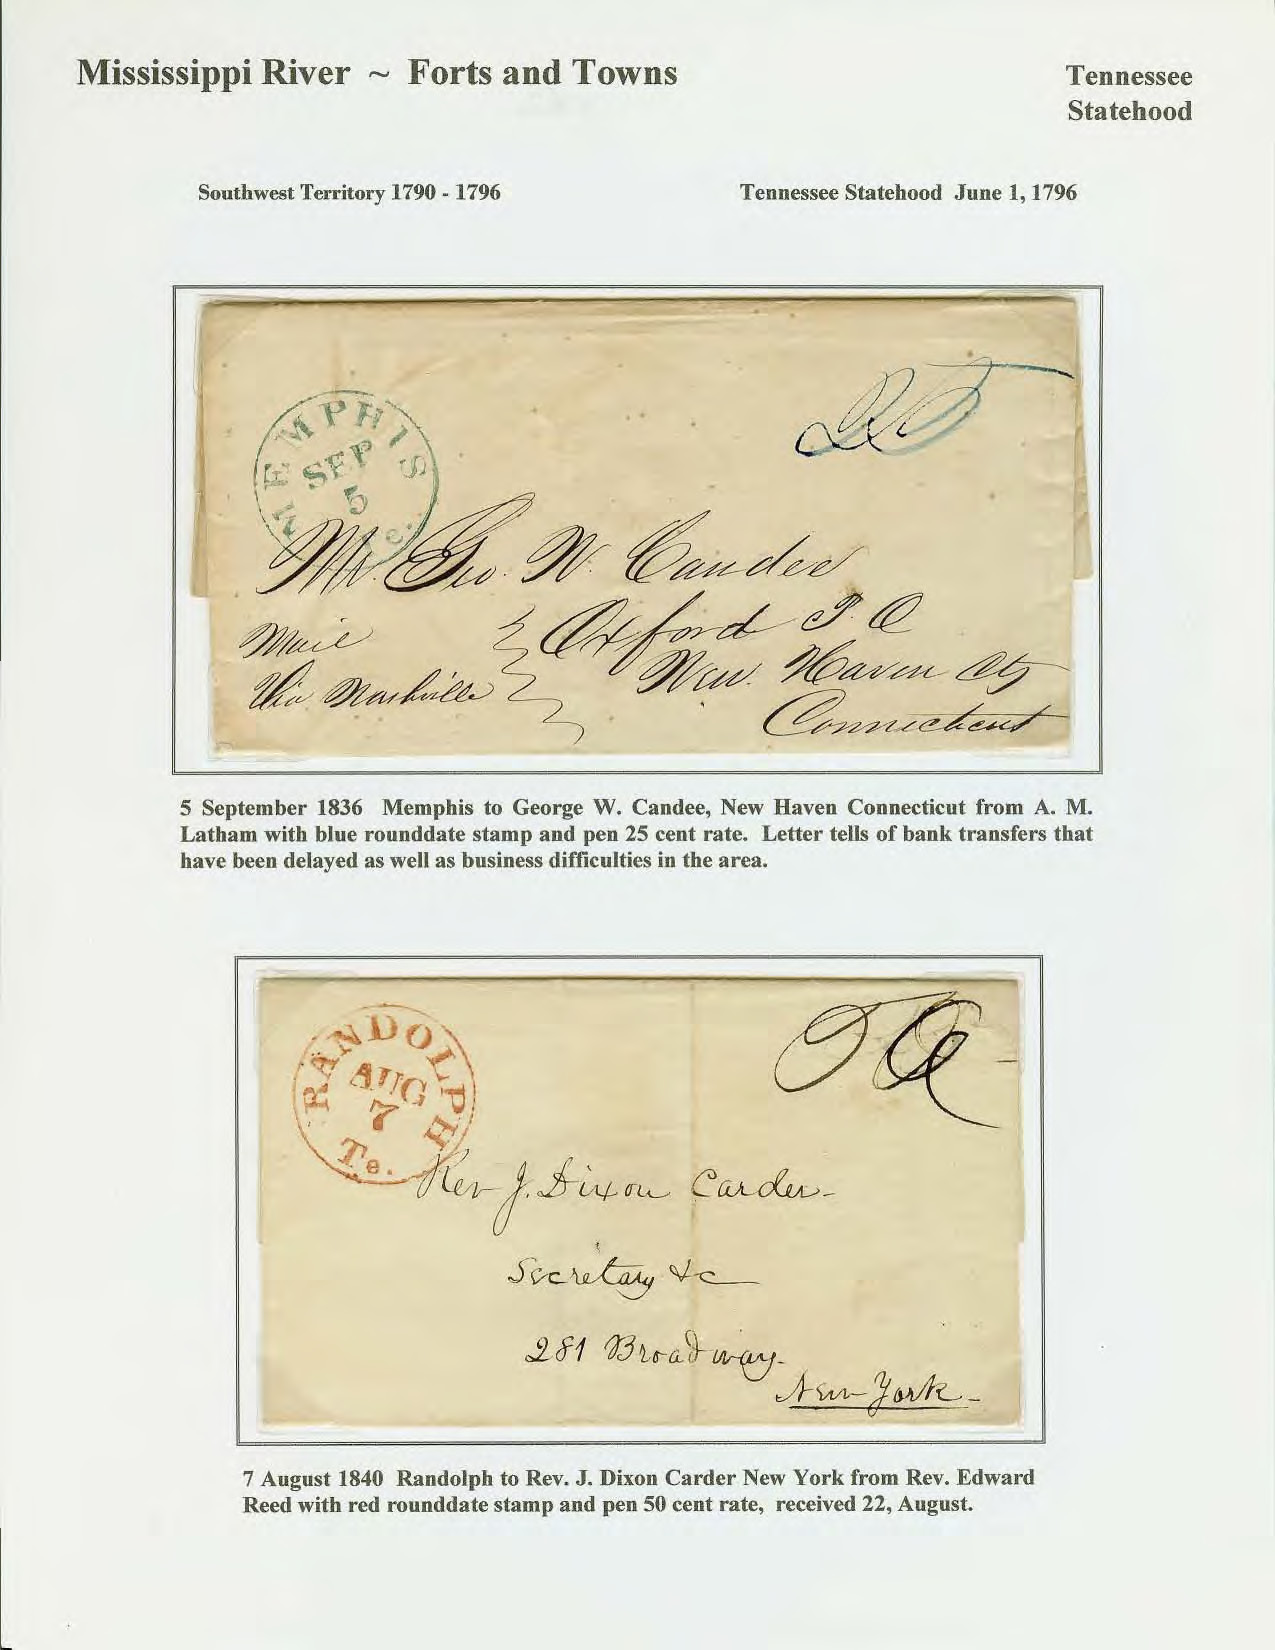 Mississippi River ~ Forts and Towns
Tennessee
Statehood
Southwest Territory 1790 - 1796
Tennessee Statehood June 1, 1796
MEMPHIS
SEP
5
Te.
25
Mr. Geo. W. Candee
Oxford P. O
New. Haven Cty
Connecticut
Mail
Via Nashville
5 September 1836 Memphis to George W. Candee, New Haven Connecticut from A. M.
Latham with blue rounddate stamp and pen 25 cent rate. Letter tells of bank transfers that
have been delayed as well as business difficulties in the area.
RANDOLPH
AUG
7
Te.
50
Rev J. Dixon Carder-
Secretary &c
281 Broadway-
New York-
7 August 1840 Randolph to Rev. J. Dixon Carder New York from Rev. Edward
Reed with red rounddate stamp and pen 50 cent rate, received 22, August.